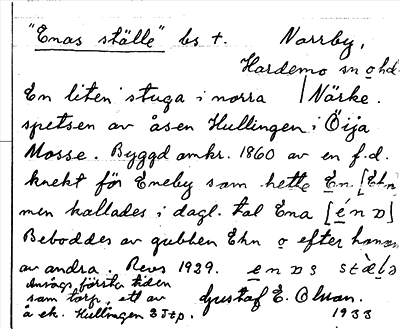 "Enas ställe" bs t. Norrby,
Hardemo sn o hd
En liten stuga i norra | Närke.
spetsen av åsen Hullingen i Öija
Mosse. Byggd omkr. 1860 av en f.d.
knekt för Eneby som hette En [Ehn
men kallades i dagl. tal Ena [énɒ]
Beboddes av gubben Ehn o efter honom
av andra. Revs 1929. enɒs stɛ̀lɒ
under första tiden
som torp, ett av Gustaf E. Olsson.
å ek. Hullingen 3 Jtp. 1933